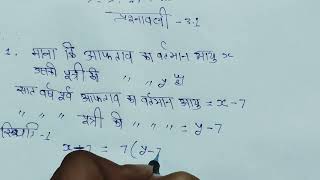 प्रश्नावली - 3.1
1. माना कि आफताब का वर्तमान आयु x
उसकी पुत्री की " " y है
सात वर्ष पूर्व आफताब का वर्तमान आयु = x - 7
" " पुत्री की " " = y - 7
स्थिति - 1
x - 7 = 7(y - 7